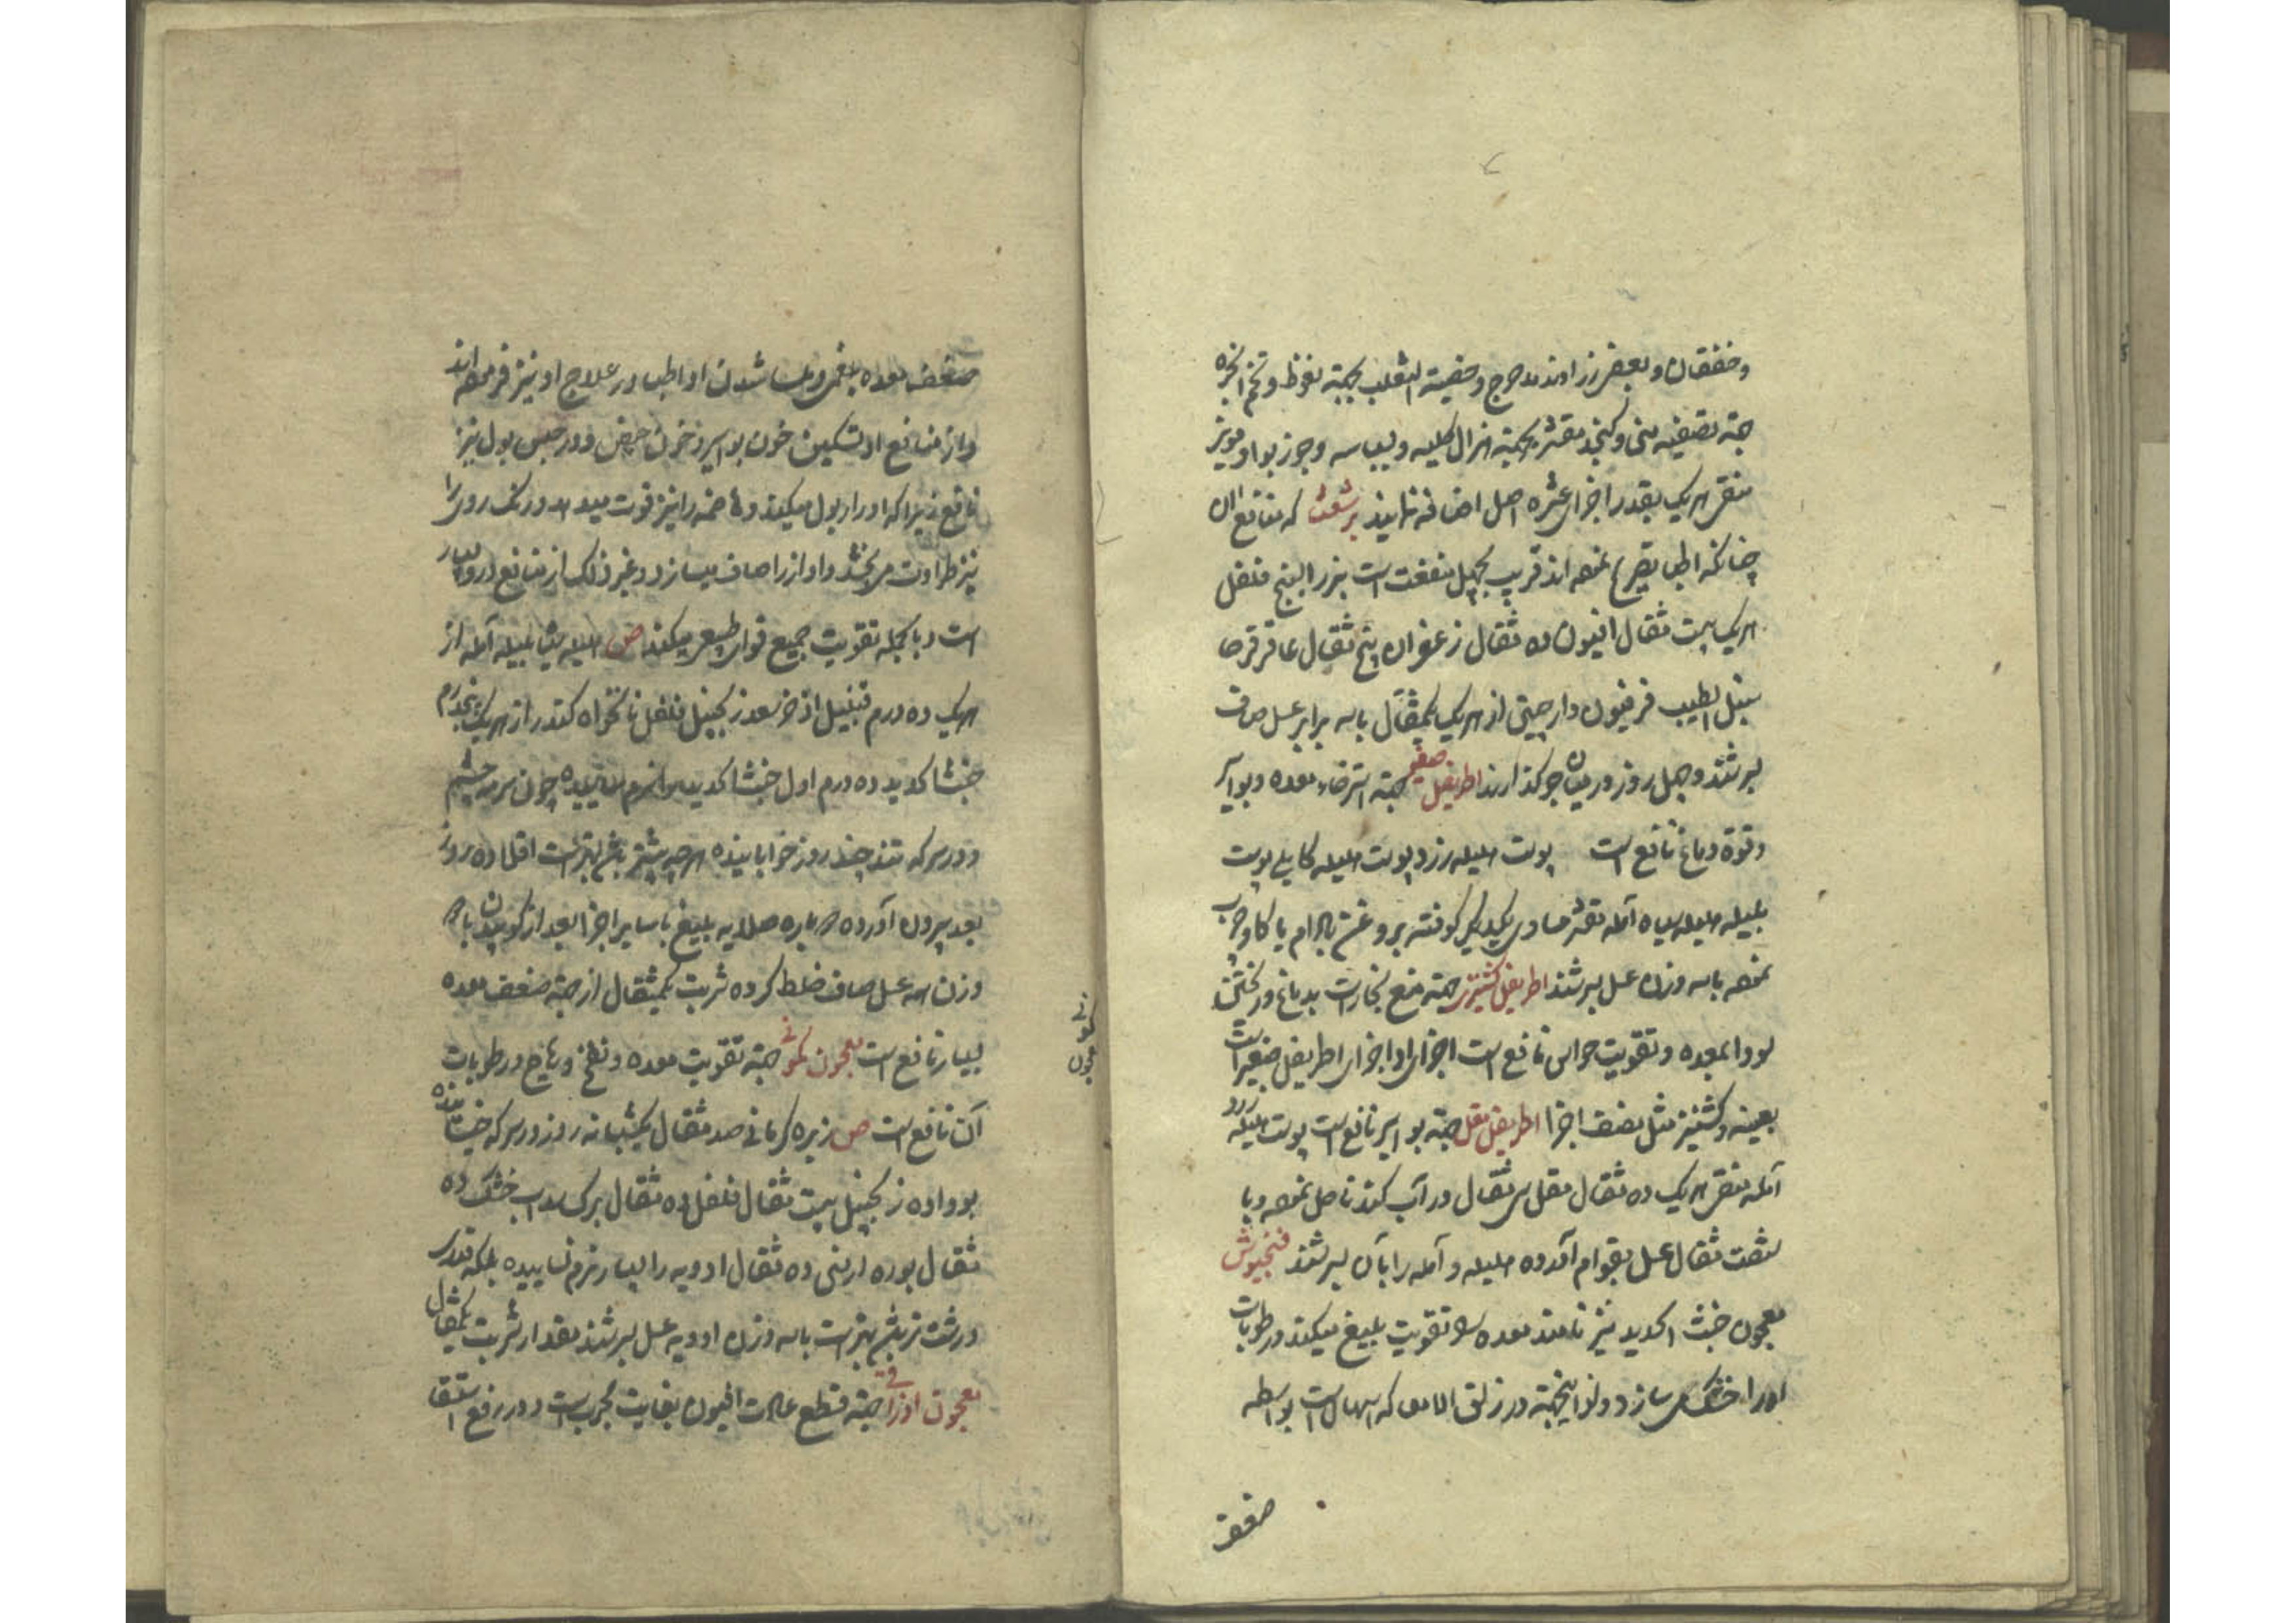 و خفقان و بعضی زراوند مدحرج و خصیة الثعلب بجهة نعوظ و تخم انجره
جهة تصفیه منی و کنجد مقشر بجهة هزال کلیه و بسباسه و جوز بوا و مویز
منقی هریک بقدر اجزای عشره اصل اضافه نمایند برشعثا که منافع ان
چنانکه اطبا تصریح نموده اند قریب بچهل منفعت است بزر البنج فلفل
هریک بیست مثقال افیون ده مثقال زعفران پنج مثقال عاقرقرحا
سنبل الطیب فرفیون دارچینی از هریک یکمثقال با سه برابر عسل صاف
بسرشند و چهل روز در میان جو گذارند اطریفل صغیر جهة استرخاء معده و بواسیر
و قوة دماغ نافع است پوست هلیله زرد پوست هلیله کابلی پوست
بلیله هلیله سیاه آمله مقشر مساوی یکدیگر کوفته بروغن بادام یا کاو چرب
نموده با سه وزن عسل بسرشند اطریفل کشنیزی جهة منع بخارات بدماغ و ریختن
سودا بمعده و تقویت حواس نافع است اجزای او اجزای اطریفل صغیر است
بعینه و کشنیز مثل نصف اجزا اطریفل مقل جهة بواسیر نافع است پوست هلیله زرد
آمله منقی هریک ده مثقال مقل سی مثقال در آب کند تا حل نموده و با
شصت مثقال عسل بقوام آورده هلیله و آمله را بآن بسرشند فنجنوش
معجون خبث الحدید نیز نامند معده را تقویت بلیغ میکند و رطوبات
او را خشک می سازد و لهذا بجهة در زلق الامعا که اسهال است بواسطه
ضعف
ضعف معده بلغمی و ملسا شدن او اطبا در علاج او نیز فرموده اند
و از منافع او تسکین خون بواسیر و خون حیض و در حبس بول نیز
نافع زیرا که ادرار بول میکند و هاضمه را نیز قوت میدهد و رنک روی را
نیز طراوت می بخشد و اواز را صاف میسازد و غیر ذلک از منافع در او بسیار
است و بالجمله تقویت جمیع قوای طبیعی میکند ص هلیله سیاه بلیله آمله از
هریک ده درم اذخر سعد زنجبیل فلفل نانخواه کندر از هریک پنجدرم
خبث الحدید ده درم اول خبث الحدید را نرم ساییده چون سرمه چشم
و در سرکه تند چند روز خوابانیده هر چه بیشتر باشد بهتر است اقلا ده روز
بعد بیرون آورده دوباره صلایه بلیغ با سایر اجزا بعد از کوبیدن با دو
وزن همه عسل صاف خلط کرده شربت یکمثقال از جهة ضعف معده
بسیار نافع است معجون کمونی جهة تقویت معده و نفخ و ریاح و رطوبات
آن نافع است ص زیره کرمانی صد مثقال یکشبانه روز در سرکه خیسانیده
بو داده زنجبیل بیست مثقال فلفل ده مثقال برک سداب خشک ده
مثقال بوره ارمنی ده مثقال ادویه را بسیار نرم نساییده بلکه قدری
درشت تر باشد بهتر است با سه وزن ادویه عسل بسرشند مقدار شربت یکمثقال
معجون اذراقی جهة قطع عادت افیون بغایت مجرب است و در رفع استسقا
معجون کمونی